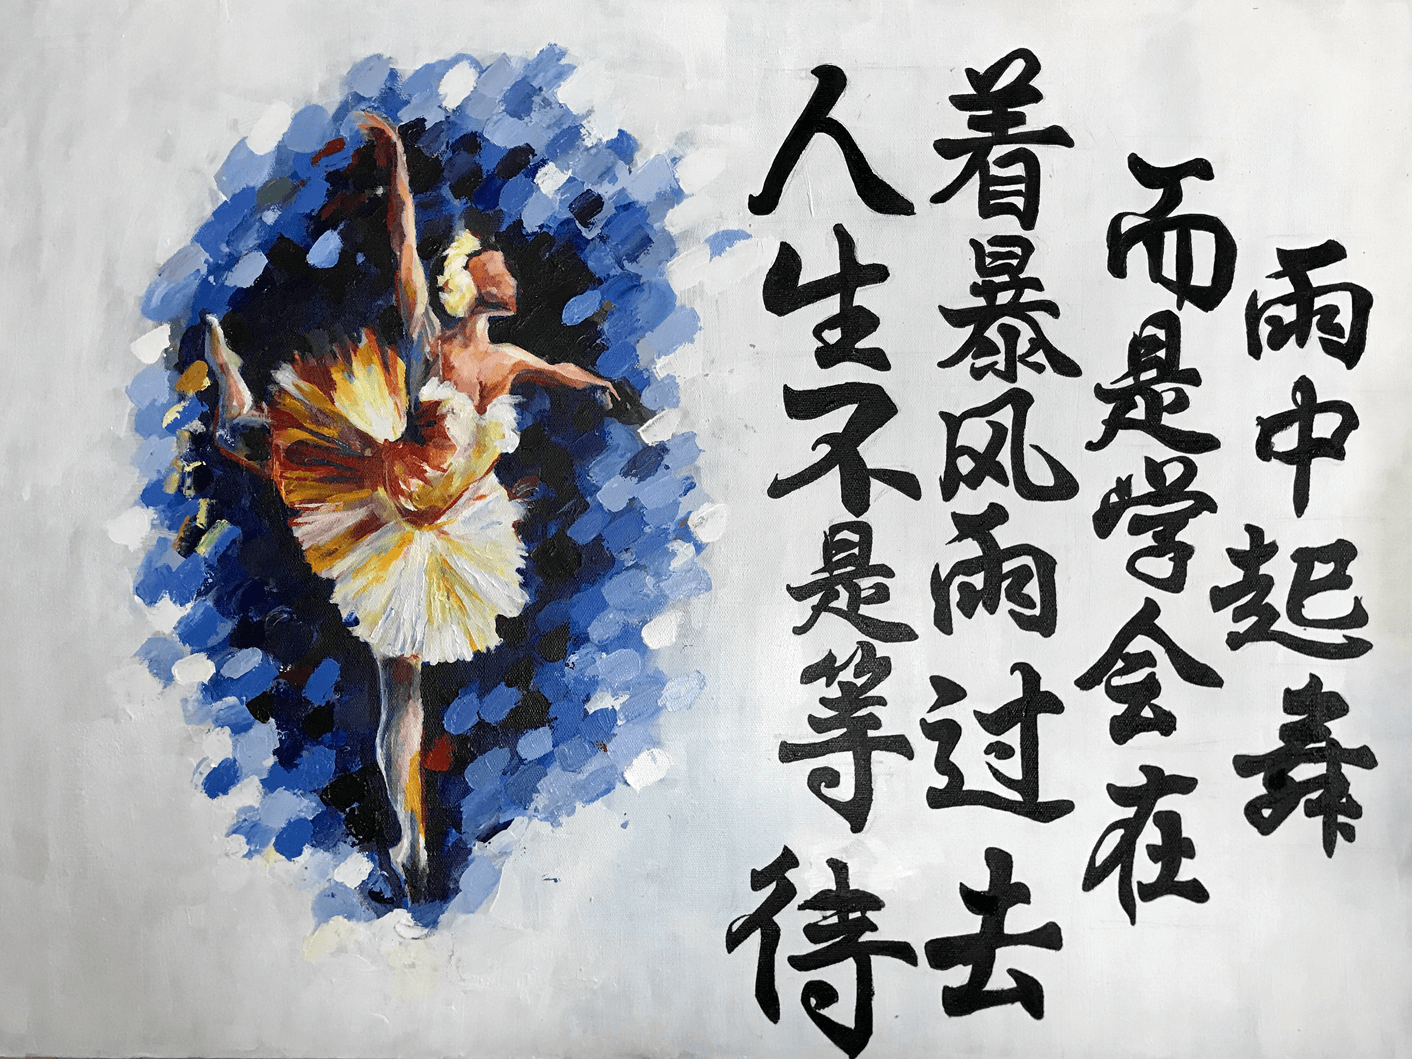 人生不是等待
着暴风雨过去
而是学会在
雨中起舞